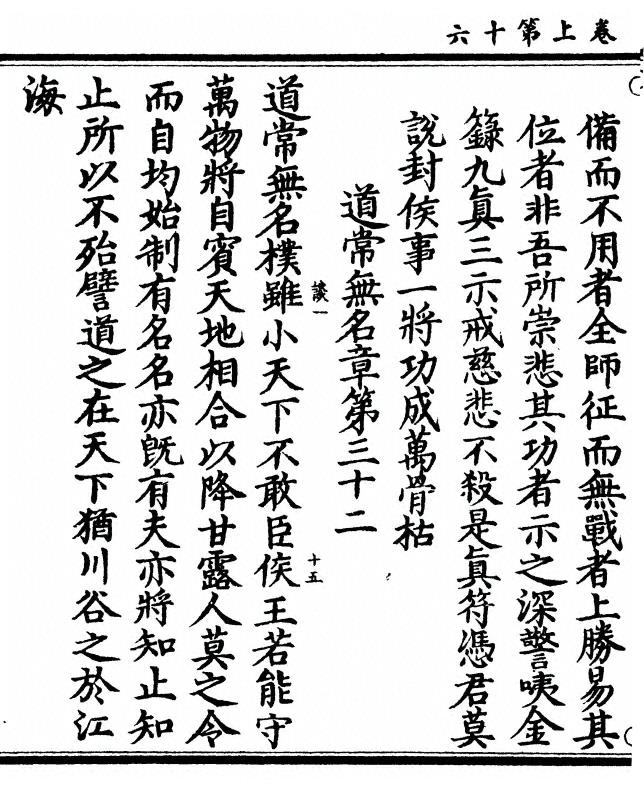 卷上第十六
備而不用者全師征而無戰者上勝易其
位者非吾所崇悲其功者示之深警咦金
籙九真三示戒慈悲不殺是真符憑君莫
說封侯事一將功成萬骨枯
道常無名章第三十二
道常無名樸雖小天下不敢臣侯王若能守
談一
十五
萬物將自賓天地相合以降甘露人莫之令
而自均始制有名名亦既有夫亦將知止知
止所以不殆譬道之在天下猶川谷之於江
海